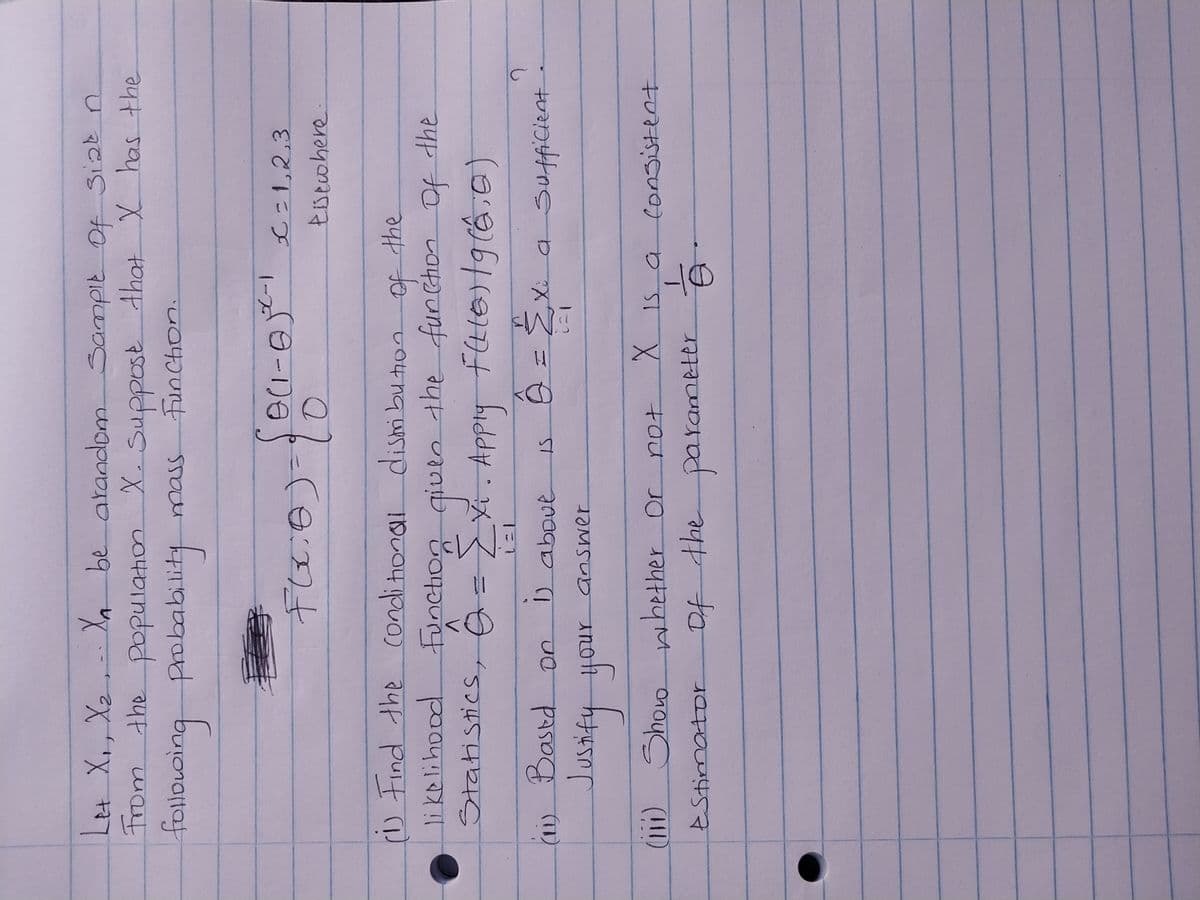 Let X₁, X₂, -- Xₙ be a random sample of size n
From the population X. Suppose that X has the
following probability mass function.
F(x;θ) = { θ(1-θ)^{x-1} x = 1,2,3
0 elsewhere.
(i) Find the conditional distribution of the
likelihood Function given the function of the
Statistics, θ̂ = Σ_{i=1}^{n} Xi. Apply F(x|θ)/g(θ̂;θ)
(ii) Based on i) above is θ̂ = Σ_{i=1}^{n} Xi a sufficient?
Justify your answer
(iii) Show whether or not X is a consistent
estimator of the parameter 1/θ.